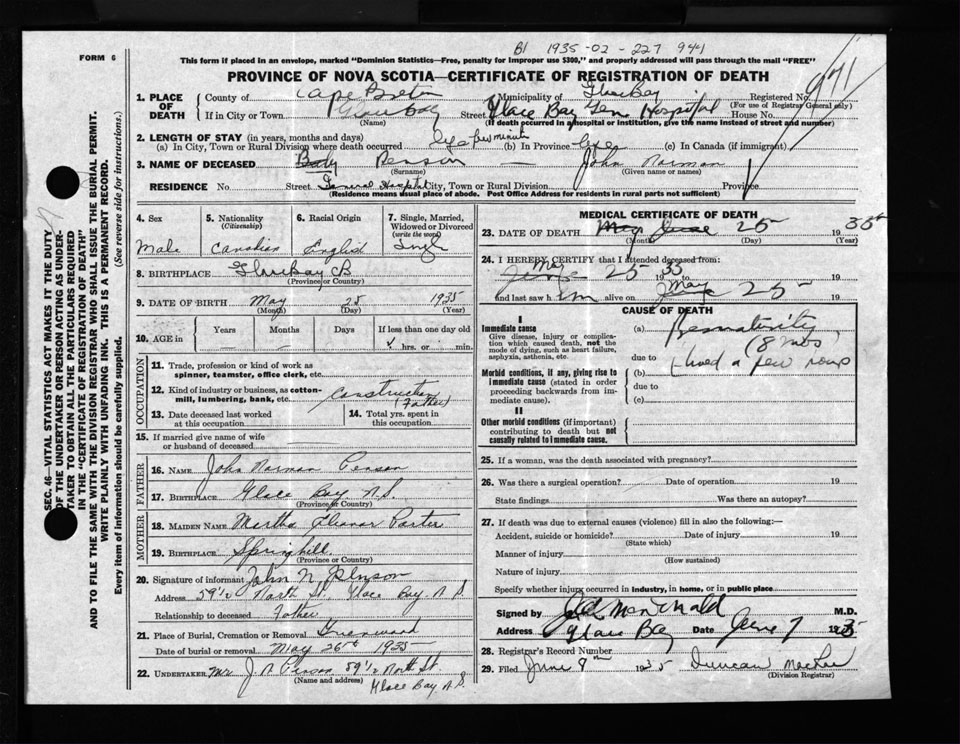 B1 1935-02-227 944
FORM 6
This form if placed in an envelope, marked "Dominion Statistics—Free, penalty for improper use $300," and properly addressed will pass through the mail "FREE"
PROVINCE OF NOVA SCOTIA—CERTIFICATE OF REGISTRATION OF DEATH
SEC. 46—VITAL STATISTICS ACT MAKES IT THE DUTY
OF THE UNDERTAKER OR PERSON ACTING AS UNDER-
TAKER TO OBTAIN ALL THE PARTICULARS REQUIRED
IN THE "CERTIFICATE OF REGISTRATION OF DEATH"
AND TO FILE THE SAME WITH THE DIVISION REGISTRAR WHO SHALL ISSUE THE BURIAL PERMIT.
WRITE PLAINLY WITH UNFADING INK. THIS IS A PERMANENT RECORD.
Every item of Information should be carefully supplied. (See reverse side for instructions.)
1. PLACE OF DEATH County of Cape Breton Municipality of Glace Bay Registered No. 971
(For use of Registrar General only)
If in City or Town Glace Bay Street Glace Bay Gen Hospital House No.
(Name) (If death occurred in a hospital or institution, give the name instead of street and number)
2. LENGTH OF STAY (in years, months and days)
(a) In City, Town or Rural Division where death occurred life few minutes (b) In Province life (c) In Canada (if immigrant)
3. NAME OF DECEASED Baby Penson — John Norman
(Surname) (Given name or names)
RESIDENCE No. Street General Hospital City, Town or Rural Division Province
(Residence means usual place of abode. Post Office Address for residents in rural parts not sufficient)
4. Sex 5. Nationality (Citizenship) 6. Racial Origin 7. Single, Married, Widowed or Divorced (write the word)
Male Canadian English Single
8. BIRTHPLACE Glace Bay CB
(Province or Country)
9. DATE OF BIRTH May 25 1935
(Month) (Day) (Year)
10. AGE in Years Months Days If less than one day old
hrs. or min.
OCCUPATION
11. Trade, profession or kind of work as
spinner, teamster, office clerk, etc.
12. Kind of industry or business, as cotton-
mill, lumbering, bank, etc. Construction (Father)
13. Date deceased last worked
at this occupation
14. Total yrs. spent in
this occupation
15. If married give name of wife
or husband of deceased
FATHER
16. NAME John Norman Penson
17. BIRTHPLACE Glace Bay N.S.
(Province or Country)
MOTHER
18. MAIDEN NAME Martha Eleanor Porter
19. BIRTHPLACE Springhill
(Province or Country)
20. Signature of informant John N. Penson
Address 59½ North St. Glace Bay N.S.
Relationship to deceased Father
21. Place of Burial, Cremation or Removal Greenwood
Date of burial or removal May 26th 1935
22. UNDERTAKER Mr J N Penson 59½ North St.
(Name and address) Glace Bay N.S.
MEDICAL CERTIFICATE OF DEATH
23. DATE OF DEATH May June 25 1935
(Month) (Day) (Year)
24. I HEREBY CERTIFY that I attended deceased from:
June May 25 1935 to 19
and last saw h im alive on June May 25 19
CAUSE OF DEATH
I
Immediate cause
Give disease, injury or complica-
tion which caused death, not the
mode of dying, such as heart failure,
asphyxia, asthenia, etc.
(a) Prematurity
(8 mos
due to
Morbid conditions, if any, giving rise to
immediate cause (stated in order
proceeding backwards from im-
mediate cause).
(b) Lived a few hours
due to
(c)
II
Other morbid conditions (if important)
contributing to death but not
causally related to immediate cause.
25. If a woman, was the death associated with pregnancy?
26. Was there a surgical operation? Date of operation 19
State findings Was there an autopsy?
27. If death was due to external causes (violence) fill in also the following:—
Accident, suicide or homicide? Date of injury 19
(State which)
Manner of injury
(How sustained)
Nature of injury
Specify whether injury occurred in industry, in home, or in public place
Signed by McDonald M.D.
Address Glace Bay Date June 7 1935
28. Registrar's Record Number
29. Filed June 8th 1935 Duncan
(Division Registrar)